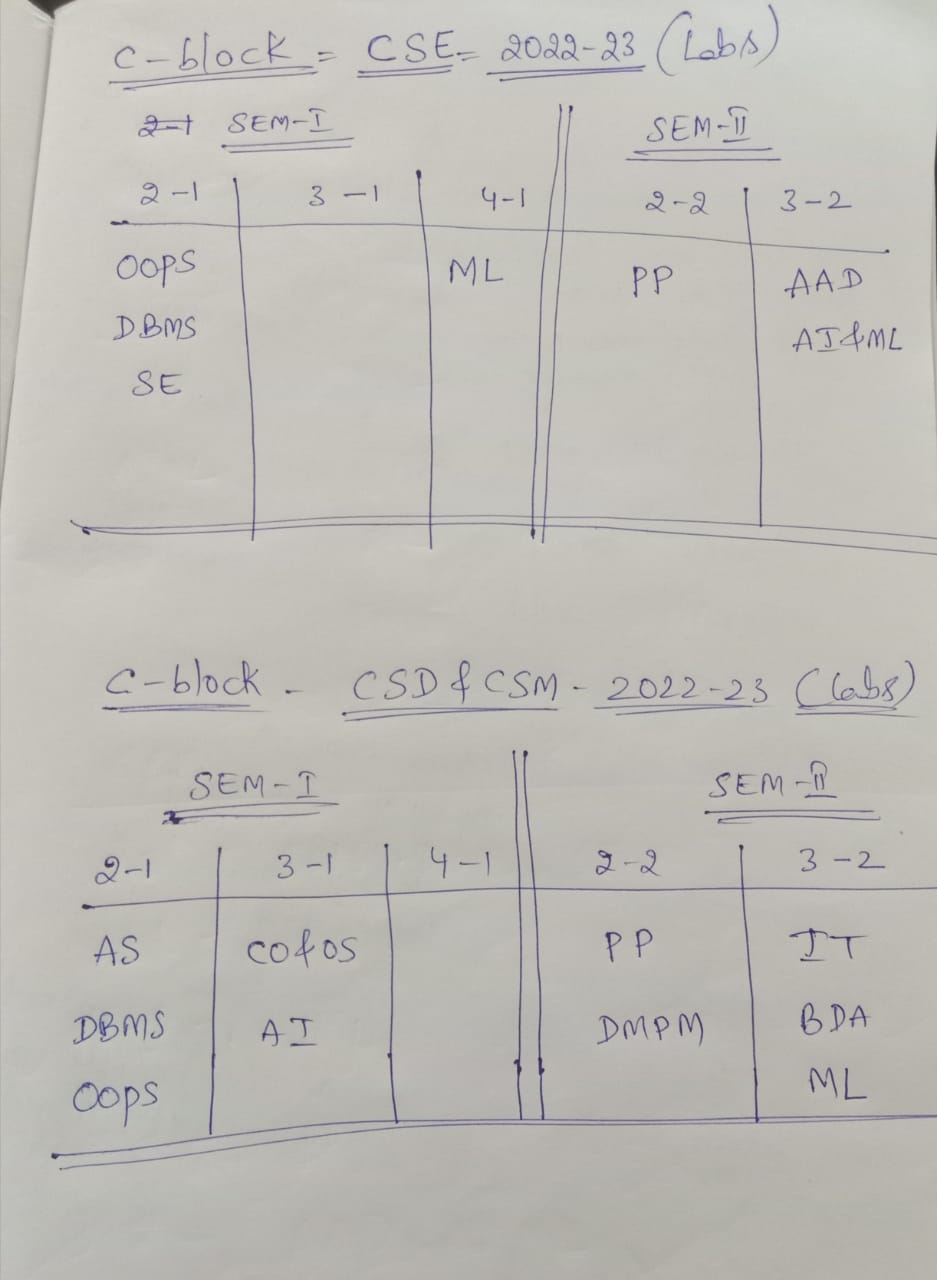 C-block = CSE= 2022-23 (Labs)
2-1 SEM-I SEM-II
2-1 3-1 4-1 2-2 3-2
OOPS ML PP AAD
DBMS AI&ML
SE
C-block - CSD & CSM - 2022-23 (Labs)
SEM-I SEM-II
2-1 3-1 4-1 2-2 3-2
AS CO&OS PP IT
DBMS AI DMPM BDA
OOPS ML